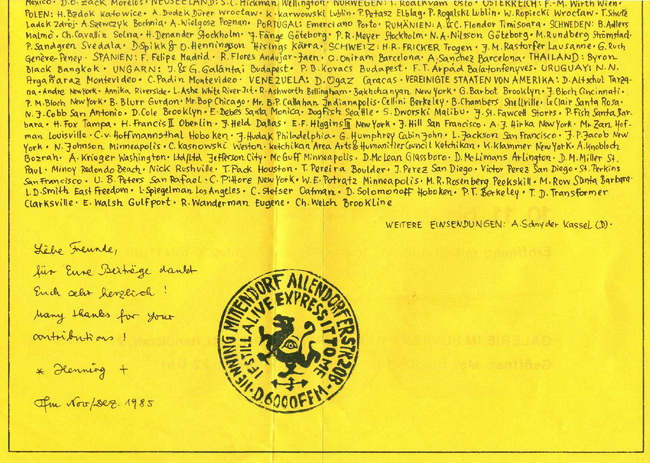 Mexico. D.O.Z. Zack Morelos · NEUSEELAND: S.C. Hickman. Wellington · NORWEGEN: T. Roalkvam Oslo · ÖSTERREICH: F.-M. Wirth Wien
POLEN: H. Bzdok Katowice · A. Dudek Dürer Wrocław · K. Karwowski Lublin · P. Petasz Elbląg · P. Rogalski Lublin · W. Ropiecki Wrocław · T. Schulz
A. Szewczyk Bochnia · A. Nielgosz Poznań · PORTUGAL: Emerenciano Porto · RUMÄNIEN: A. & C. Fiondor Timisoara · SCHWEDEN: B. Ahlers
Malmö · Ch. Cavallin Solna · H. Denander Stockholm · J. Fånge Göteborg · P.R. Meyer Stockholm · N.A. Nilsson Göteborg · M. Rundberg Strömstad
P. Sandgren Svedala · D. Spikk & O. Henningson Hisings Kärra · SCHWEIZ: H.R. FRICKER Trogen · J.M. Rastorfer Lausanne · G. Ruch
Genève-Peney · SPANIEN: F. Felipe Madrid · R. Flores Andujar-Jaen · O. Oniram Barcelona · A. Sanchez Barcelona · THAILAND: Byron
Black Bangkok · UNGARN: J. & G. Galántai Budapest · P.B. Kovacs Budapest · F.T. Árpád Balatonfenyves · URUGUAY: N.N.
Argañaraz Montevideo · C. Padin Montevideo · VENEZUELA: D. Ogaz Caracas · VEREINIGTE STAATEN VON AMERIKA: D. Altschul Tarza-
na · Andre New York · Annika Riverside · L. Ashe White River Jct. · R. Ashworth Bellingham · Bakhchanyan New York · G. Barbot Brooklyn · J. Bloch Cincinnati
P.M. Bloch New York · B. Blurr Gurdon · Mr. Bop Chicago · Mr. B · P. Callahan Indianapolis · Cellini Berkeley · B. Chambers Snellville · Le Clair Santa Rosa ·
N.J. Cobb San Antonio · D. Cole Brooklyn · E. Debes Santa Monica · Dogfish Seattle · S. Dworski Malibu · J. St. Fawcett Shores · P. Fish Santa Bar-
bara · H. Fox Tampa · H. Francis II Oberlin · J. Held Dallas · E.F. Higgins III New York · J. Hill San Francisco · A.J. Hirka New York · Mr. Zan Hof-
man Louisville · C. v. Hoffmannsthal Hoboken · J. Hudak Philadelphia · G. Humphrey Cabin John · L. Jackson San Francisco · J.P. Jacob New
York · N. Johnson Minneapolis · C. Kasnowski Weston · Ketchikan Area Arts & Humanities Council Ketchikan · K. Klammer New York · A. Knobloch
Bozrah · A. Krüger Washington · Ltd.Ltd. Jefferson City · Mc Guff Minneapolis · D. McLean Glassboro · D. McLimans Arlington · D.M. Miller St.
Paul · Minoy Redondo Beach · Nick Rushville · T. Pack Houston · T. Pereira Boulder · J. Perez San Diego · Victor Perez San Diego · St. Perkins
San Francisco · U.B. Peters San Rafael · C. Pittore New York · W.E. Potratz Minneapolis · M.R. Rosenberg Peekskill · M. Row Santa Barbara ·
L.D. Smith East Freedom · L. Spiegelman Los Angeles · C. Stetser Oatman · D. Solomonoff Hoboken · P.T. Berkeley · T.D. Transformer
Clarksville · E. Walsh Gulfport · R. Wanderman Eugene · Ch. Welch Brookline
WEITERE EINSENDUNGEN: A. Schnyder Kassel (D) ·
Liebe Freunde,
für Eure Beiträge dankt
Euch sehr herzlich!
Many thanks for your
contributions!
* Henning +
Ffm Nov/Dez. 1985
HENNING MITTENDORF ALLENDORFERSTR. 20B · D. 6000 FFM
LIFE STILL ALIVE EXPRESS IT TO ME